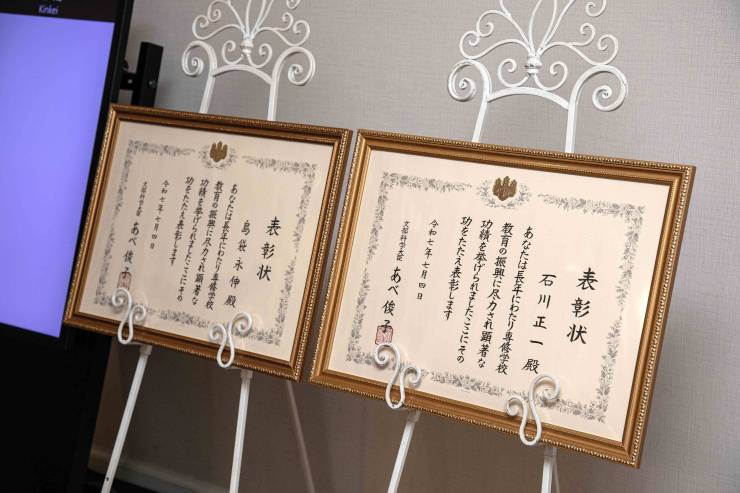 Kinkei
表彰状
島袋永伸殿
あなたは長年にわたり専修学校
教育の振興に尽力され顕著な
功績を挙げられましたここにその
功をたたえ表彰します
令和七年七月四日
文部科学大臣 あべ俊子
表彰状
石川正一殿
あなたは長年にわたり専修学校
教育の振興に尽力され顕著な
功績を挙げられましたここにその
功をたたえ表彰します
令和七年七月四日
文部科学大臣 あべ俊子